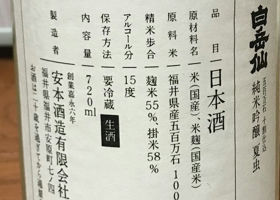 白岳仙
純米吟醸 夏虫
品目 日本酒
原材料名 米(国産)、米麹(国産米)
原料米 福井県産五百万石100
精米歩合 麹米55%、掛米58%
アルコール分 15度
保存方法 要冷蔵 生酒
内容量 720ml
製造者
創業嘉永六年
安本酒造有限会社
福井県福井市安原町七ノ四
お酒は二十歳を過ぎてから